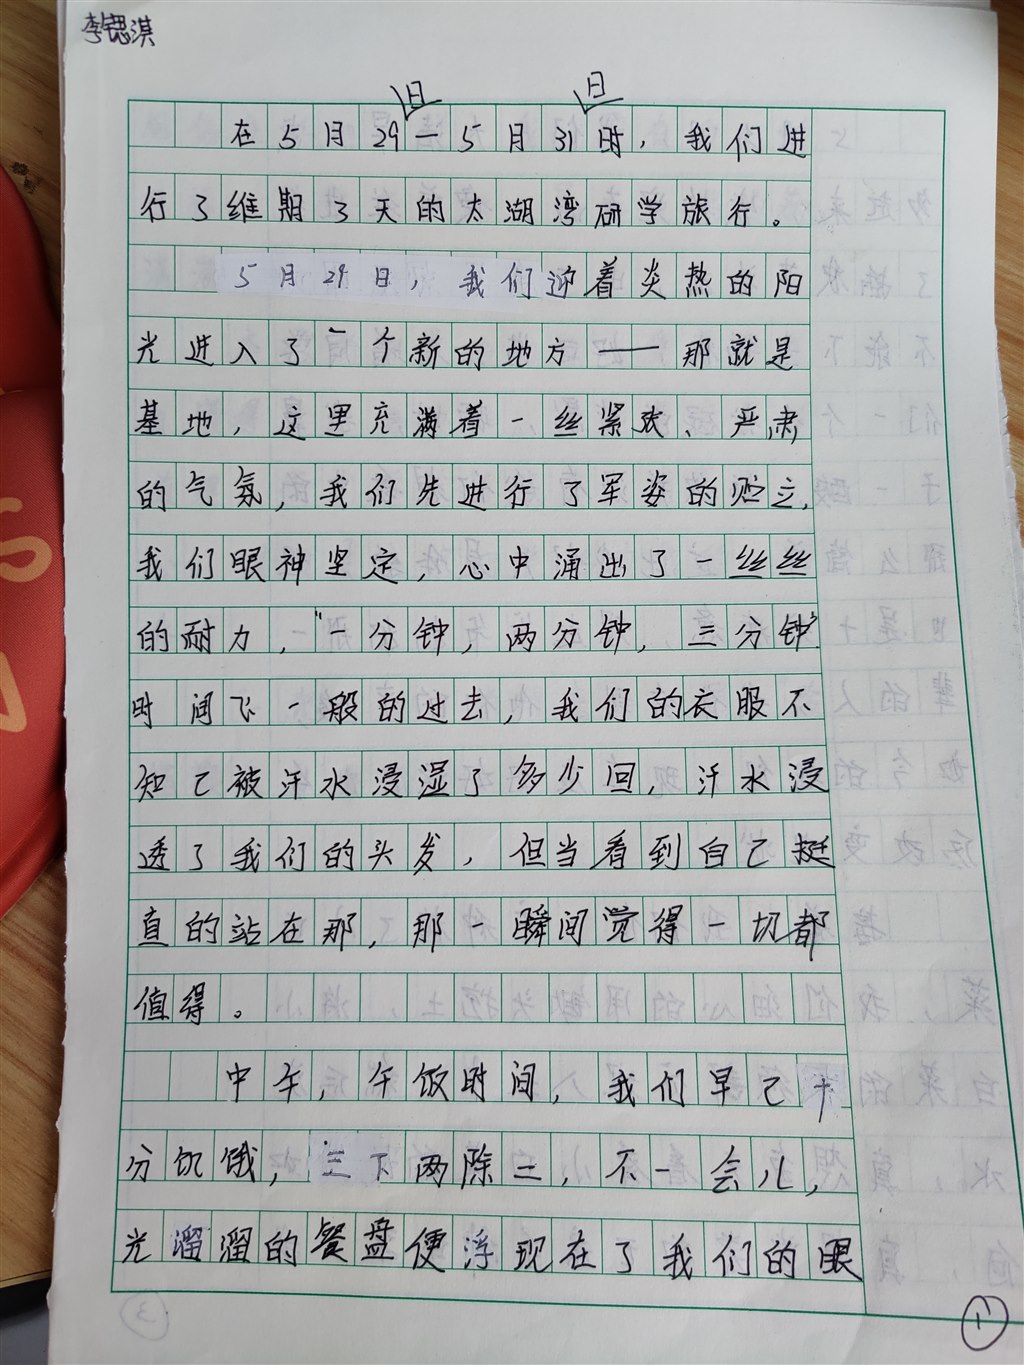 李锶淇
日 日
在5月29—5月31时，我们进
行了维期3天的太湖湾研学旅行。
5月29日，我们迎着炎热的阳
光进入了一个新的地方——那就是
基地，这里充满着一丝紧张、严肃
的气氛，我们先进行了军姿的贮立，
我们眼神坚定，心中涌出了一丝丝
的耐力，“一分钟，两分钟，三分钟”
时间飞一般的过去，我们的衣服不
知已被汗水浸湿了多少回，汗水浸
透了我们的头发，但当看到自己挺
直的站在那，那一瞬间觉得一切都
值得。
中午，午饭时间，我们早已十
分饥饿，三下两除三，不一会儿，
光溜溜的餐盘便浮现在了我们的眼
1